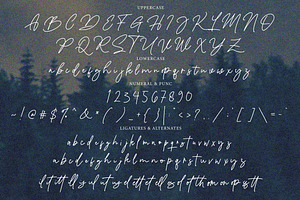 UPPERCASE
ABCDEFGHIJKLMNO
PQRSTUVWXYZ
LOWERCASE
abcdefghijklmnopqrstuvwxyz
NUMERAL & PUNC
1234567890
LIGATURES & ALTERNATES
abcdefghijklmnopqrstuvwxyz
abcdefghijklmnopqrstuvwxyz